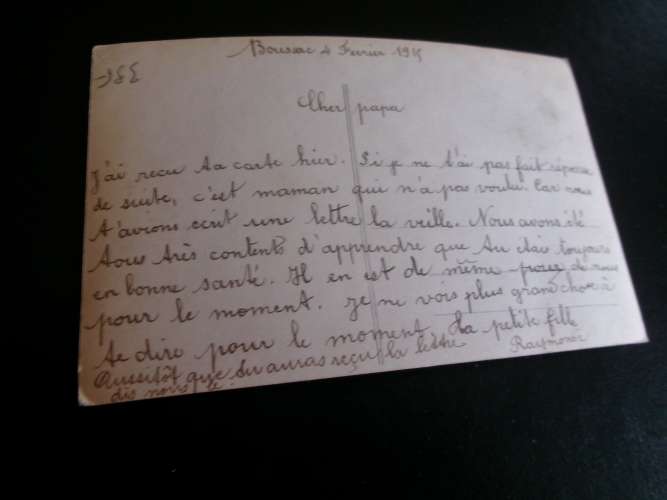 Boussac 4 Février 1915
Cher papa
J'ai reçu ta carte hier. Si je ne t'ai pas fait réponse
de suite, c'est maman qui n'a pas voulu. Car nous
t'avions ecrit une lettre la veille. Nous avons été
tous très contents d'apprendre que tu étais toujours
en bonne santé. Il en est de même pour de nous
pour le moment. Je ne vois plus grand chose à
te dire pour le moment. Ta petite fille
Raymonde
Aussitôt que tu auras reçu la lettre
dis nous le.